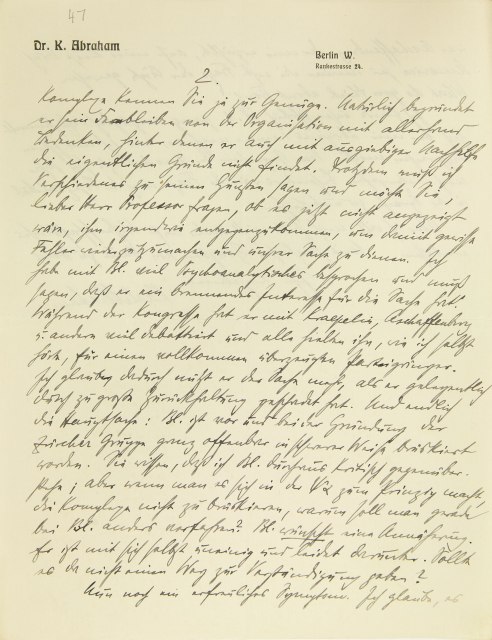 47
Dr. K. Abraham
Berlin W.
Rankestrasse 24.
2.
Komplexe kennen Sie ja zur Genüge. Natürlich begründet
er sein Fernbleiben von der Organisation mit allerhand
Bedenken, hinter denen er auch mit ausgiebiger Nachhilfe
die eigentlichen Gründe nicht findet. Trotzdem muß ich
Verschiedenes zu seinen Gunsten sagen und möchte Sie,
lieber Herr Professor fragen, ob es jetzt nicht angezeigt
wäre, ihm irgendwie entgegenzukommen, um damit gewisse
Fehler wiedergutzumachen und unsrer Sache zu dienen. Ich
habe mit Bl. viel Psychoanalytisches besprochen und muß
sagen, daß er ein brennendes Interesse für die Sache hat.
Während der Kongresse hat er mit Kraepelin, Aschaffenburg
u. andern viel debattiert und alle hielten ihn, wie ich selbst
hörte, für einen vollkommen überzeugten Parteigänger.
Ich glaube, dadurch nützt er der Sache mehr, als er gelegentlich
durch zu große Zurückhaltung geschadet hat. Und endlich
die Hauptsache: Bl. ist vor und bei der Gründung der
Züricher Gruppe ganz offenbar in schwerer Weise brüskiert
worden. Sie wissen, daß ich Bl. durchaus kritisch gegenüber-
stehe; aber wenn man es sich in der ΨΑ zum Prinzip macht,
die Komplexe nicht zu brüskieren, warum soll man gerade
bei Bl. anders verfahren? Bl. wünscht eine Annäherung.
Er ist mit sich selbst uneinig und leidet darunter. Sollte
es da nicht einen Weg zur Verständigung geben?
Nun noch ein erfreuliches Symptom. Ich glaube, es